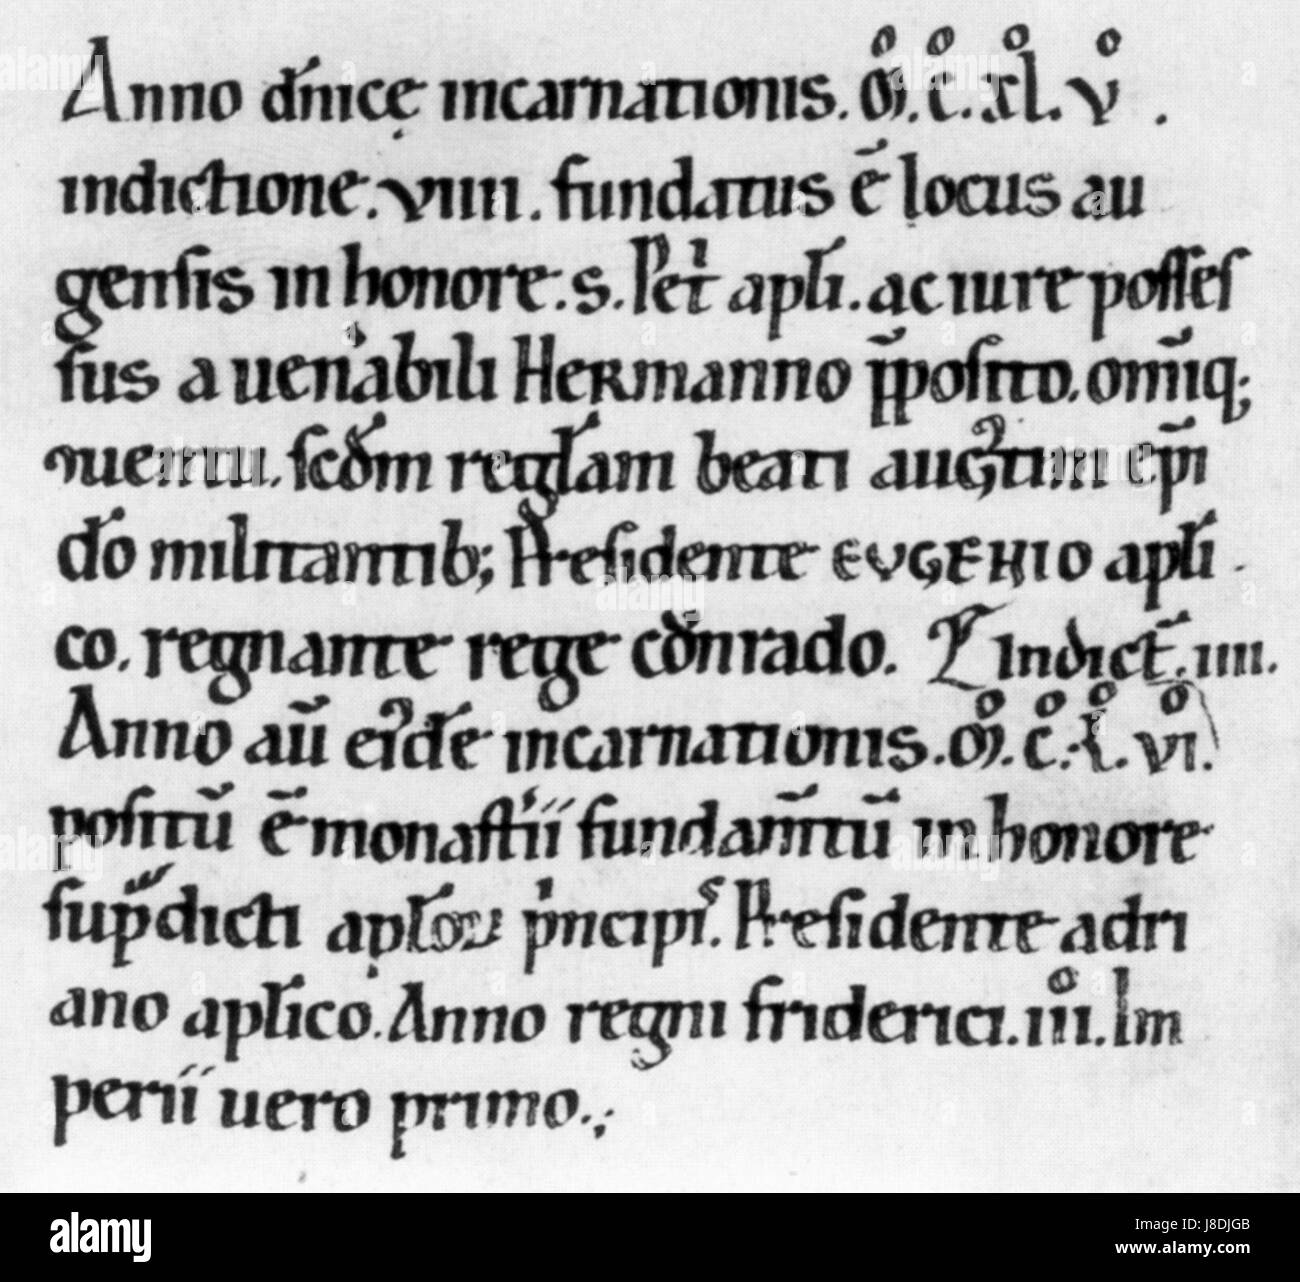 Anno dn̄icę incarnationis. M̊. C̊. XL̊. V̊.
indictione. VIIII. fundatus ē locus au
gensis in honore. s. Petͥ apłi. ac iure posses
sus a ueńabili Hermanno p̄posito. omīq;
scd̄m regłam beati aug̉tini ep̄i
dō militantib; Presidente EVGENIO apłi
co. regnante rege cōnrado. Indict̄. IIII.
Anno aū ei᾽dē incarnationis. M̊. C̊. L̊. VI̊.
positū ē monast̉íí fundam̄tū in honore
supᷓdicti apłoꝝ pͥncipiˢ. Presidente adri
ano apłico. Anno regni friderici. IIIº. Im
períí uero primo.;
alamy
Image ID: J8DJGB
www.alamy.com